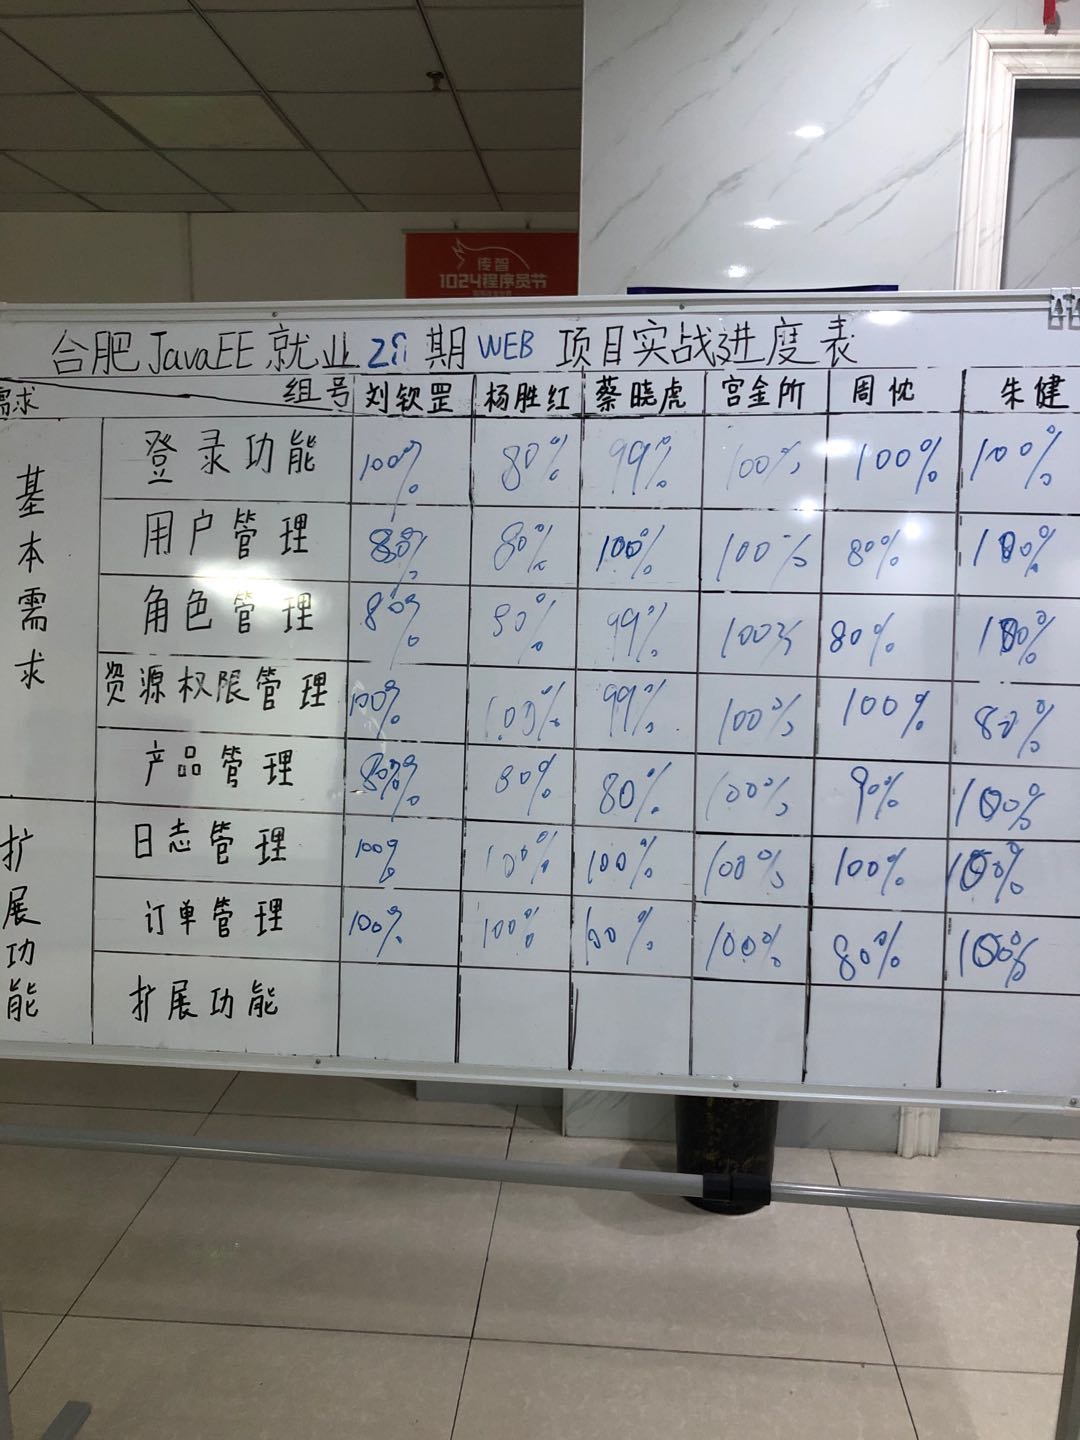 传智
1024程序员节
合肥JavaEE就业 期WEB 项目实战进度表
需求 组号 刘钦罡 杨胜红 蔡晓虎 宫金所 周忱 朱健
基本需求
登录功能 100% 80% 99% 100% 100% 100%
用户管理 80% 80% 100% 100% 80% 100%
角色管理 80% 90% 99% 100% 80% 100%
资源权限管理 100% 100% 99% 100% 100% 80%
产品管理 80% 80% 80% 100% 90% 100%
扩展功能
日志管理 100% 100% 100% 100% 100% 100%
订单管理 100% 100% 100% 80% 100%
扩展功能